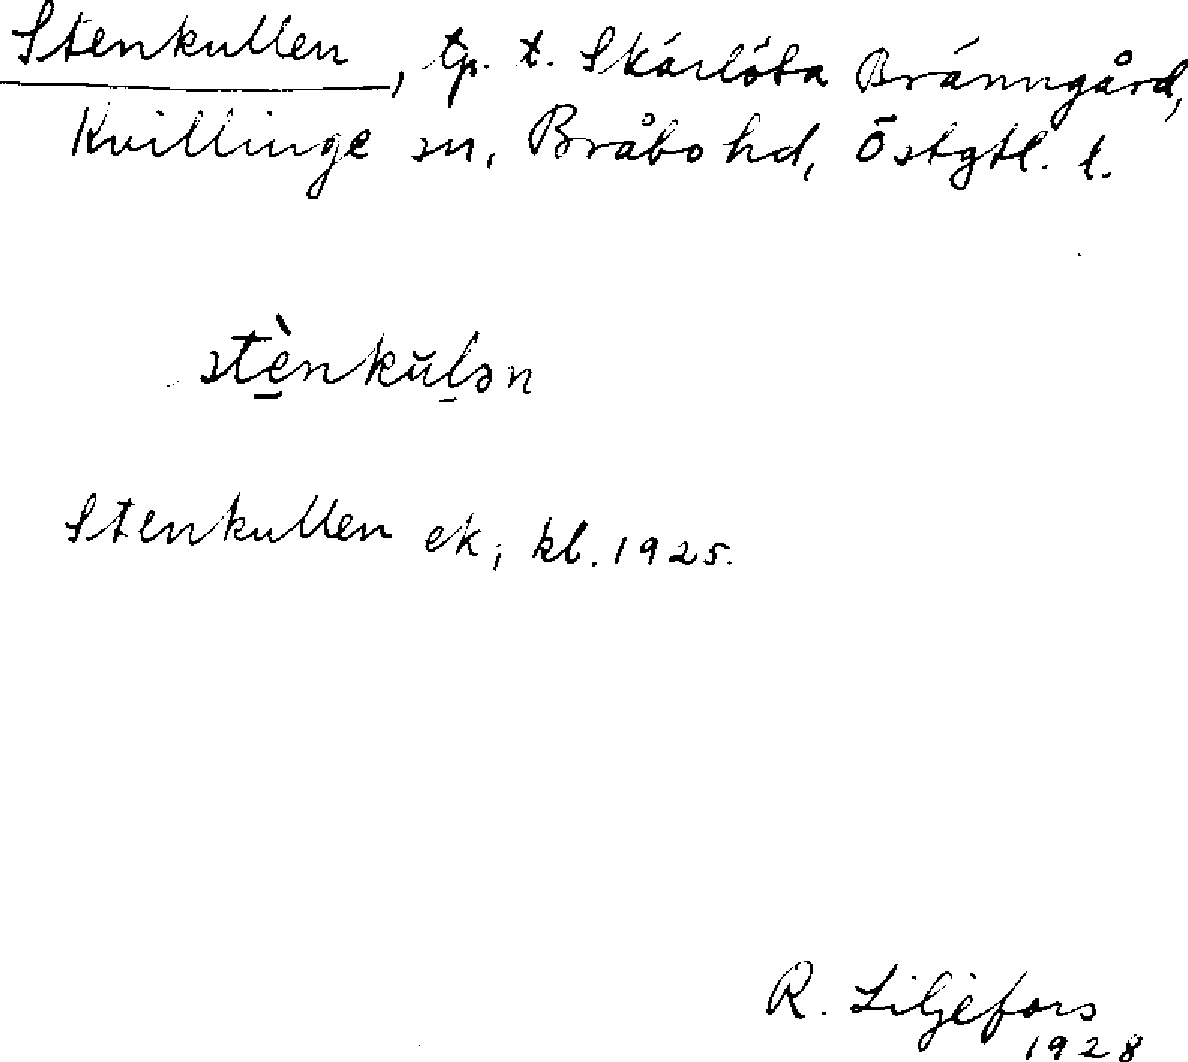 Stenkullen, tp. t. Skärlöta Bränngård,
Kvillinge sn, Bråbo hd, Östgtl. l.
stè̱nkŭl̠ən
Stenkullen ek, kbl. 1925.
R. Liljefors
1928